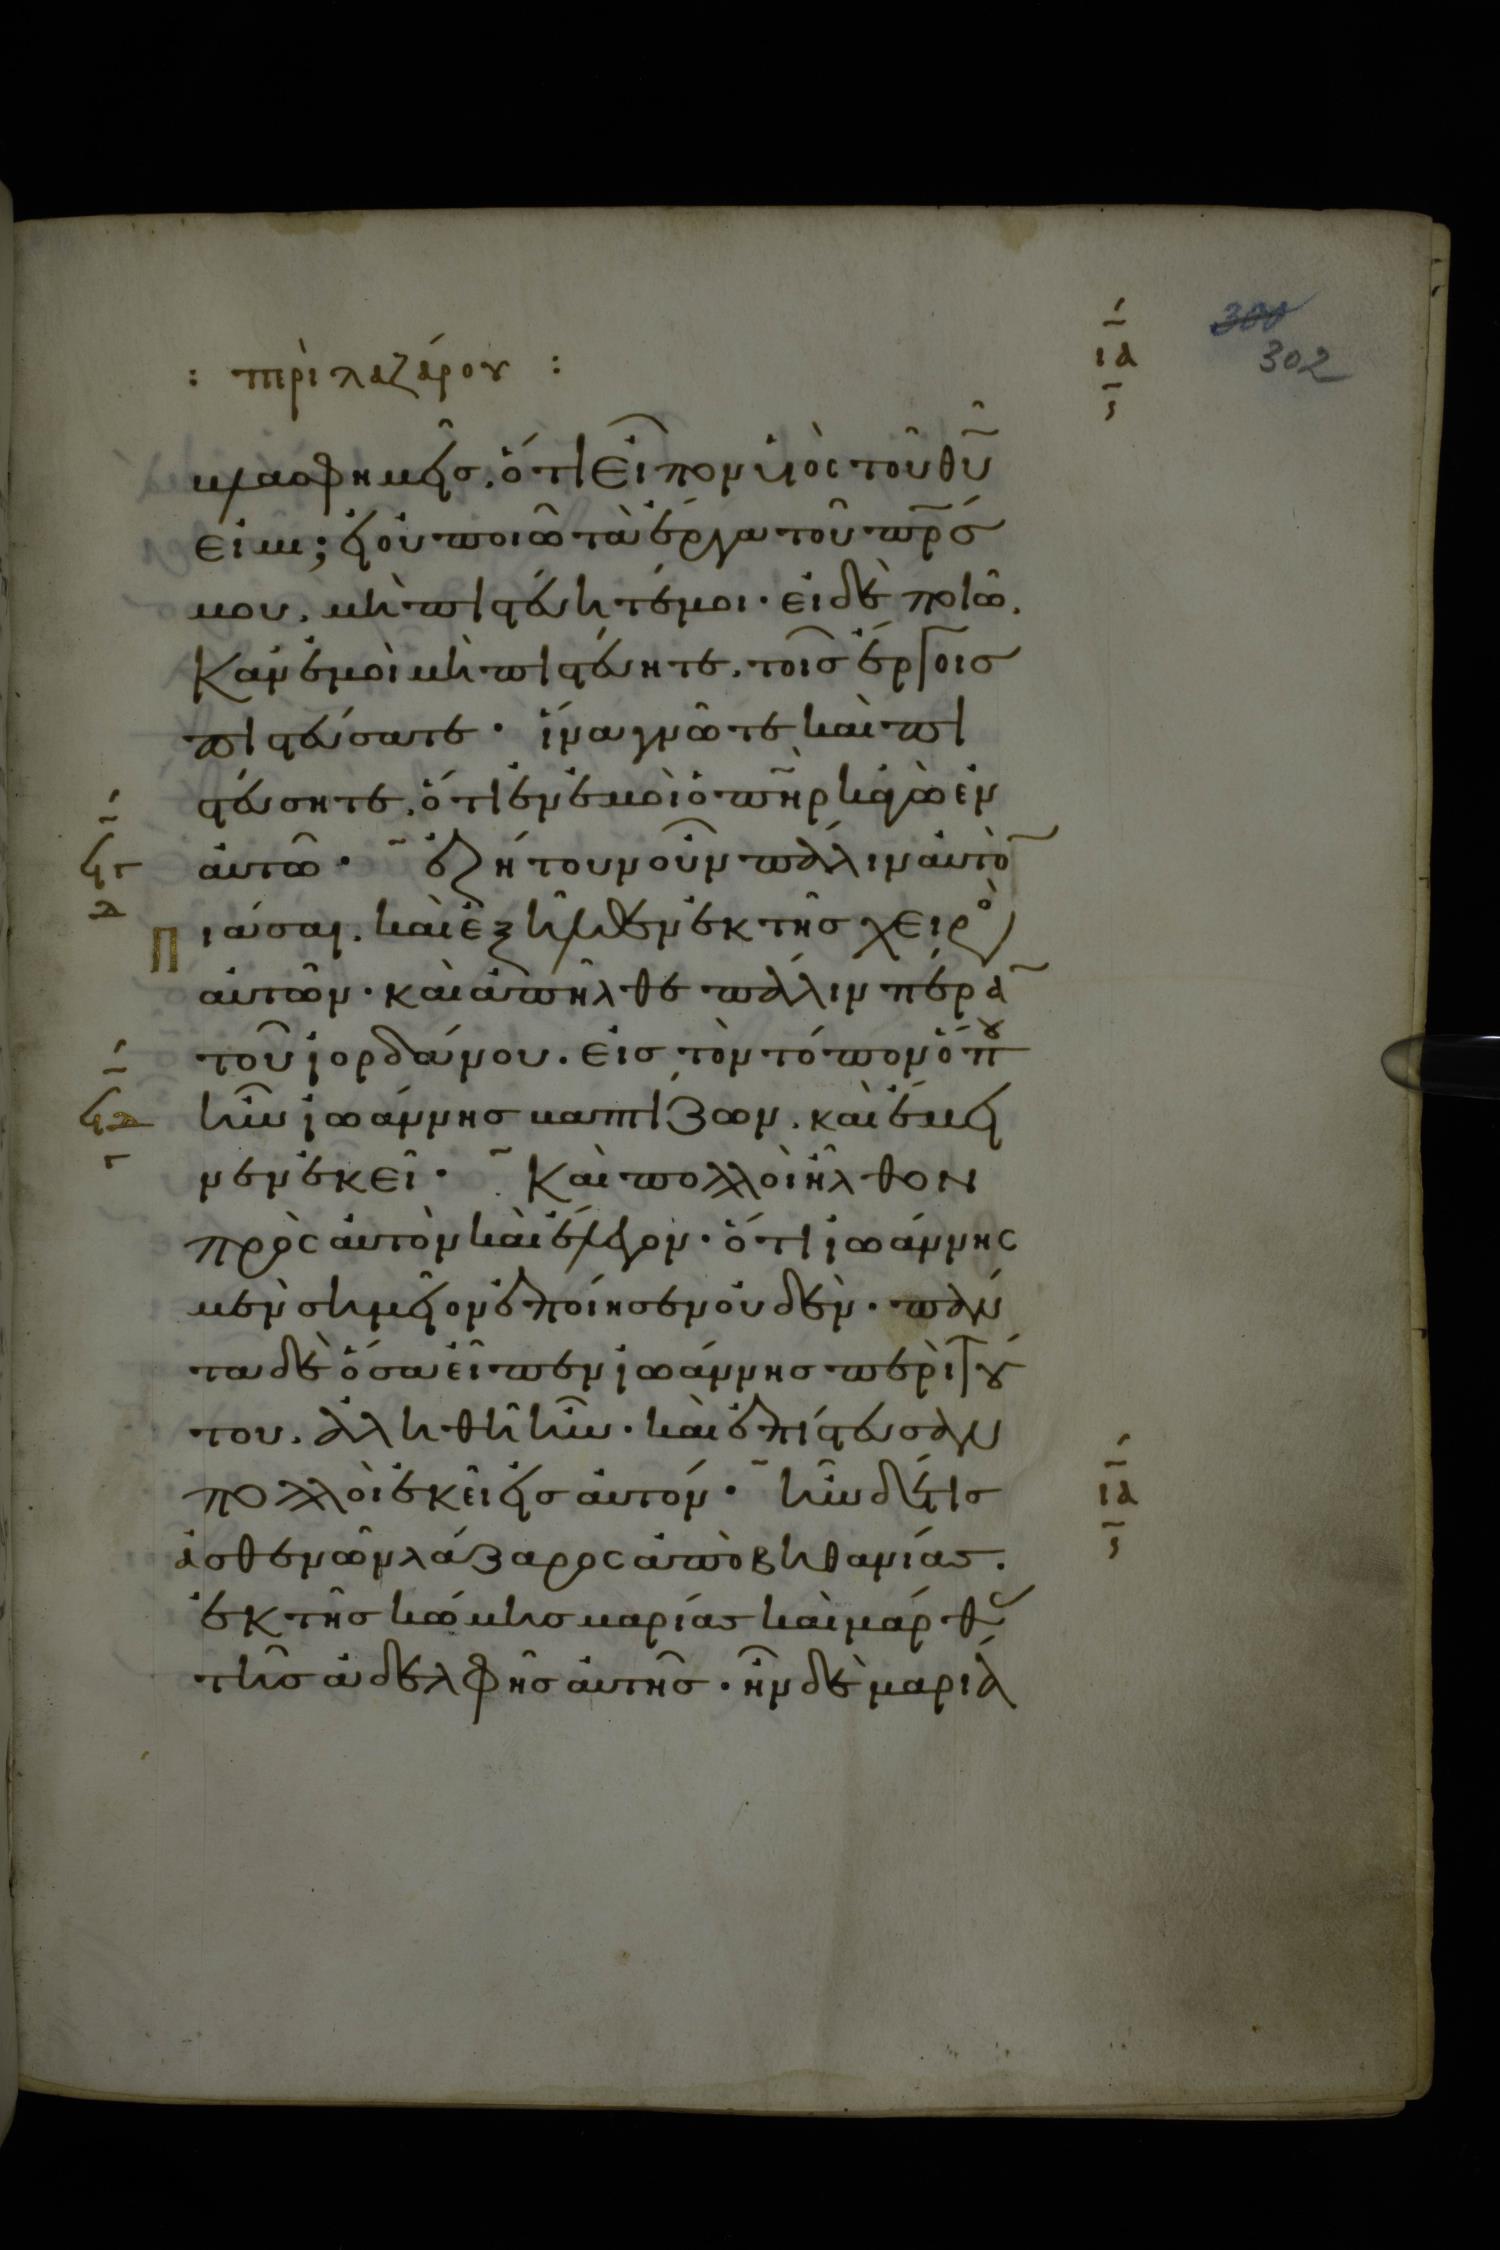 : περὶ λαζάρου :
ια
300
302
βλασφημεῖς, ὅτι εἶπον υἱὸς τοῦ θῦ
εἰμι; εἰ οὐ ποιῶ τὰ ἔργα τοῦ πρς
μου, μὴ πιστεύητέ μοι· εἰ δὲ ποιῶ,
κἀν ἐμοὶ μὴ πιστεύητε, τοῖς ἔργοις
πιστεύσατε· ἵνα γνῶτε καὶ πι
στεύσητε, ὅτι ἐν ἐμοὶ ὁ πηρ κἀγὼ ἐν
αὐτῶ· ἐζήτουν οὖν πάλιν αὐτὸ
πιάσαι. καὶ ἐξῆλθεν ἐκ τῆς χειρὸ
αὐτῶν· καὶ ἀπῆλθε πάλιν πέρα
τοῦ ἰορδάνου. εἰς τὸν τόπον ὅπου
ἦν ἰωάννης βαπτίζων. καὶ ἔμει
νεν ἐκεῖ· Καὶ πολλοὶ ἦλθον
πρὸς αὐτὸν καὶ ἔλεγον· ὅτι ἰωάννης
μὲν σημεῖον ἐποίησεν οὐδέν· πάν
τα δὲ ὅσα εἶπεν ἰωάννης περὶ τού
του, ἀληθῆ ἦν· καὶ ἐπίστευσαν
πολλοὶ ἐκεῖ εἰς αὐτόν· ἦν δέ τις
ια
ἀσθενῶν λάζαρος ἀπὸ βηθανίας.
ἐκ τῆς κώμης μαρίας καὶ μάρθ
τῆς ἀδελφῆς αὐτῆς· ἦν δὲ μαρία